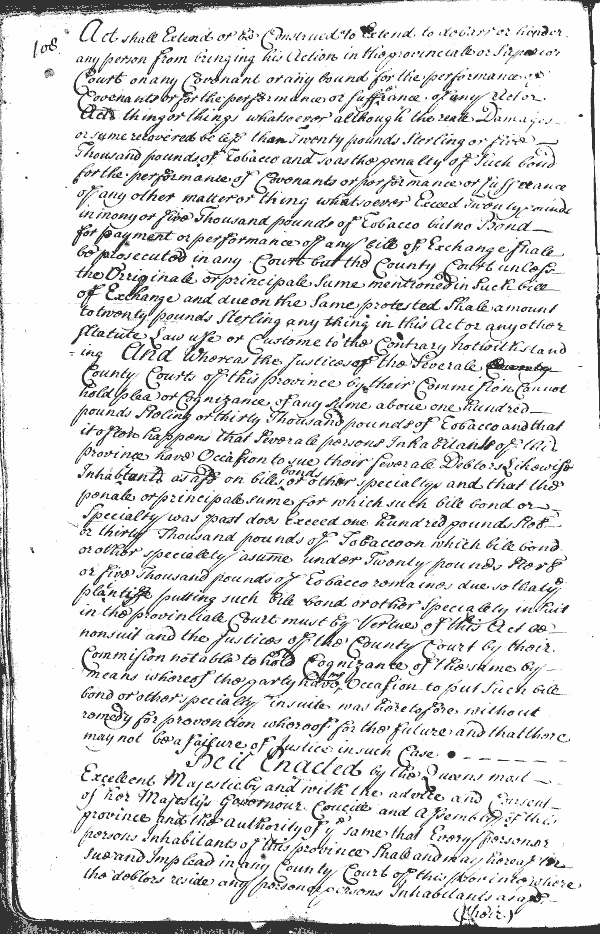 108
Act shall Extend or be Construed to Extend to debarr or hinder
any person from bringing his Action in the provinciale or Superior
Court on any Covenant or any bound for the performance of
Covenants or for the performance or suffrance of any Act or
Acts thing or things whatsoever although the reale Damages
or sume recovered be less than Twenty pounds Sterling or five
Thousand pounds of Tobacco and so as the penalty of Such bond
for the performance of Covenants or performance or sufferance
of any other matter or thing whatsoever Exceed Twenty pounds
in mony or five Thousand pounds of Tobacco but no Bond
for payment or performance of any bill of Exchange shale
be prosecuted in any Court but the County Court unless
the Origínale or principale Sume mentioned in Such bill
of Exchange and due on the Same protested Shale amount
to twenty pounds Sterling any thing in this Act or any other
Statute Law use or Custome to the Contrary notwithstand
=ing And whereas the Justices of the Severale County
County Courts of this province by their Commission Cannot
hold plea or Cognizance of any sume above one hundred
pounds Sterling or thirty Thousand pounds of Tobacco and that
it often happens that Severale persons Inhabitants of this
province have Occasion to sue their severale Debtors Likewise
Inhabitants as afd on bills bonds or other specialtys and that the
penale or principale sume for which such bill bond or
Specialty was past does exceed one hundred pounds Ster
or thirty Thousand pounds of Tobacco on which bill bond
or other specialty a sume under Twenty pounds Ster
or five Thousand pounds of Tobacco remaines due so that ye
plaintiff putting such bill bond or other Specialty in suit
in the provinciale Court must by Vertue of this Act be
nonsuit and the Justices of the County Court by their
Commission not able to hold Cognizance of the same by
means whereof the party having Occasion to put Such bill
bond or other specialty in suite was heretofore without
remedy for prevention whereof for the future and that there
may not be a failure of Justice in such Case
Be it Enacted by the Queens most
Excellent Majestie by and with the advice and Consent
of her Majestys Governour Councile and Assembly of this
province and the Authority of ye same that Every person or
persons Inhabitants of this province Shale and may hereafter
Sue and Implead in any County Court of this province where
the debtors reside any person or persons Inhabitants as afd
(their)